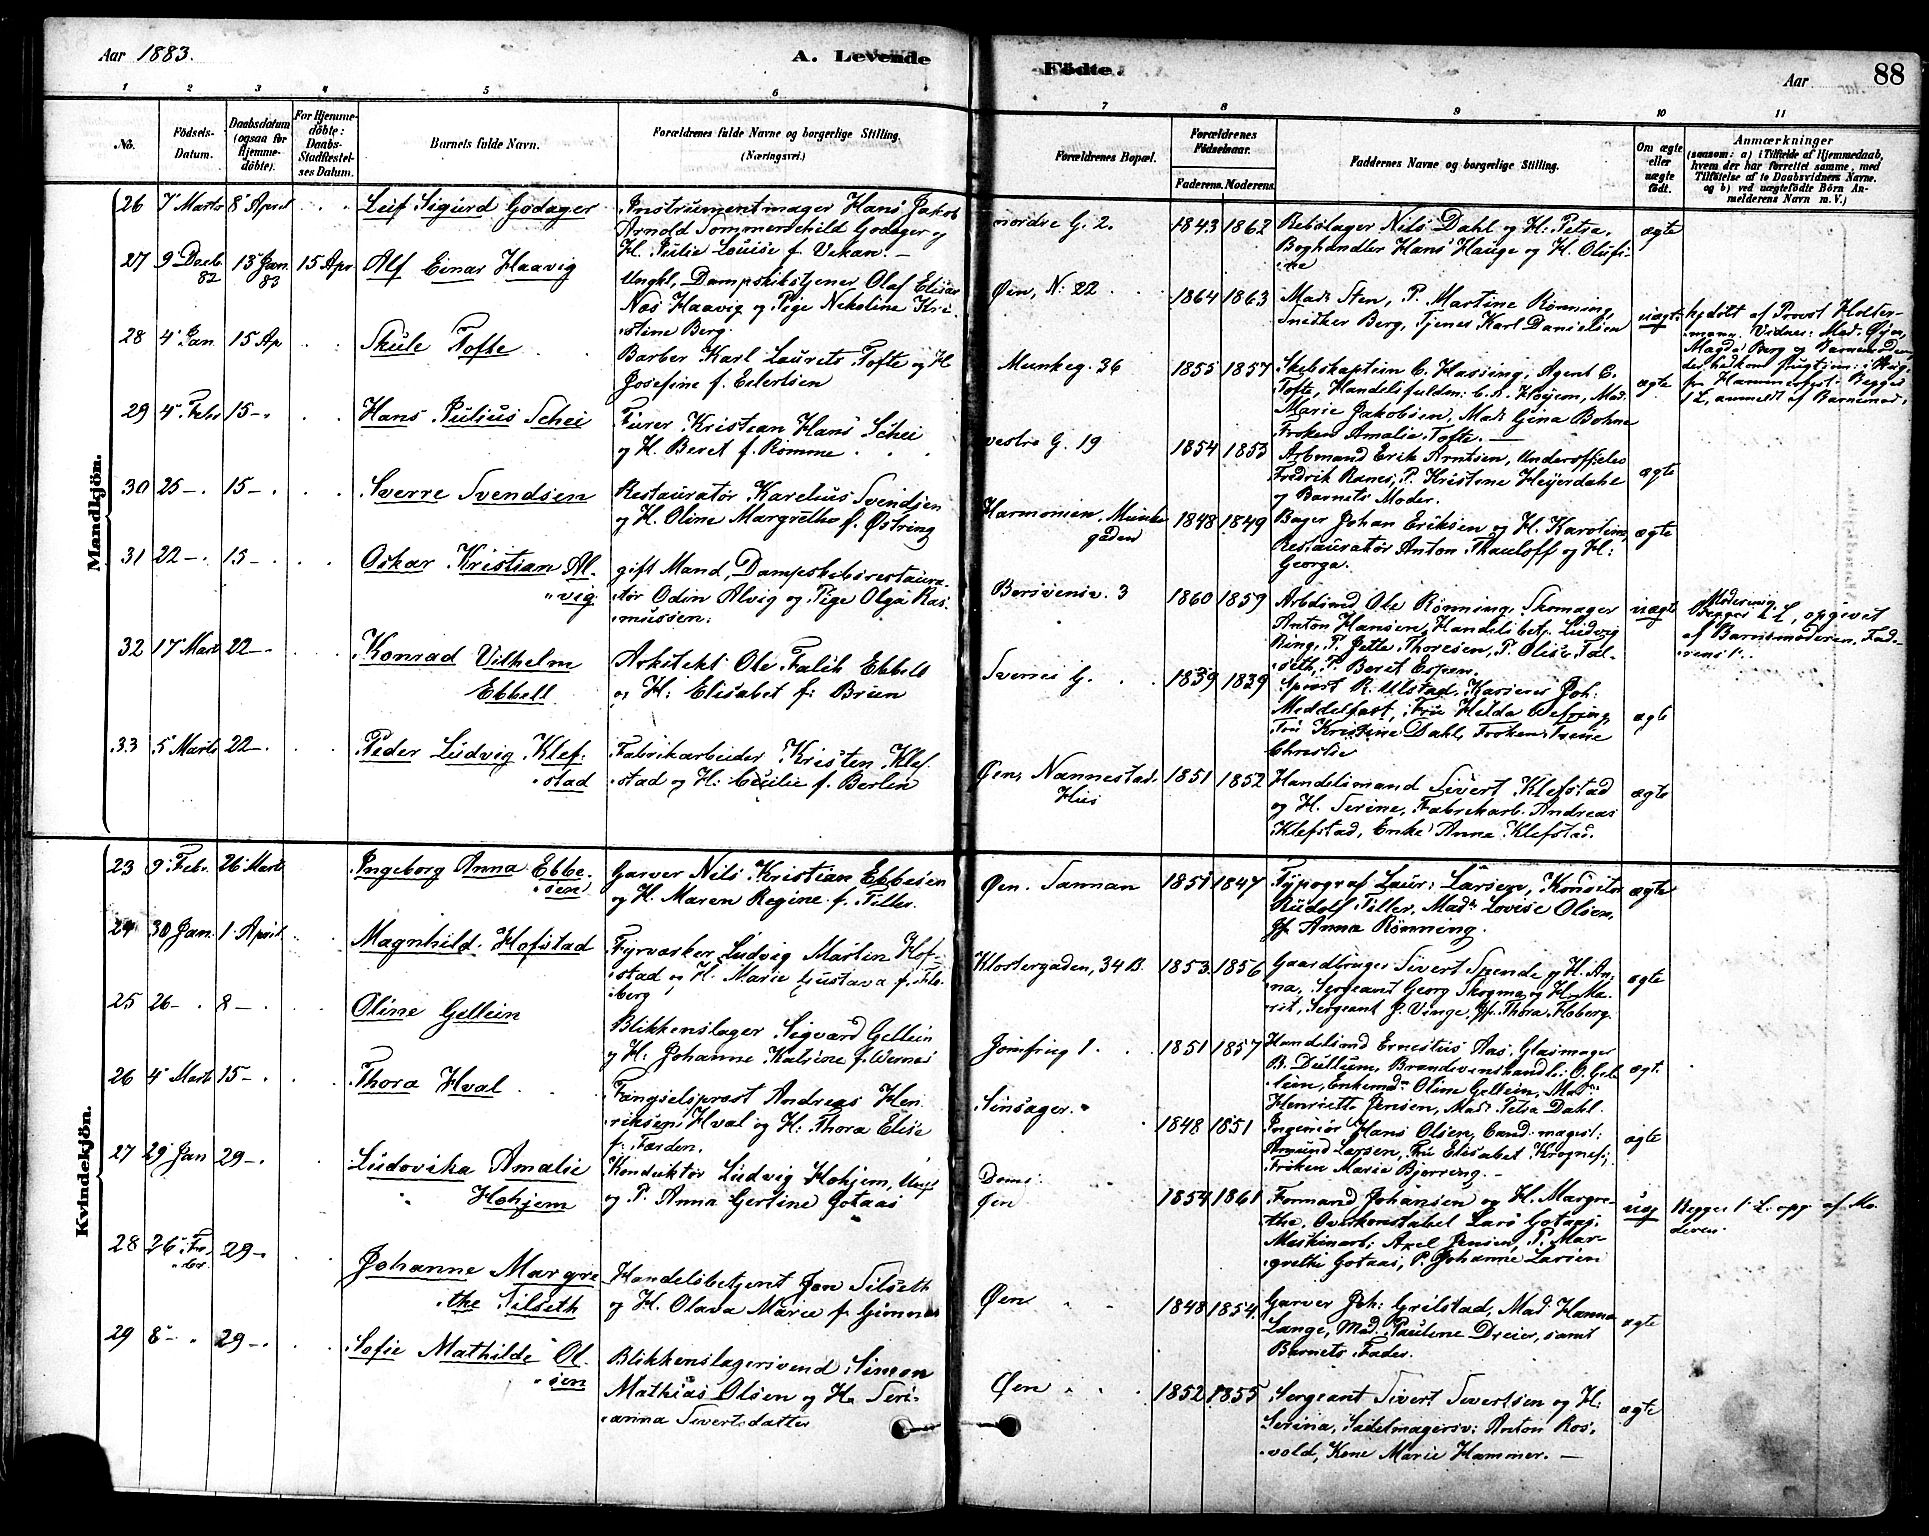 Aar 1883.
A. Levende
Födte.
Aar
88
1 2 3 4 5 6 7 8 9 10 11
No.
Födsels-
Datum.
Daabsdatum
(ogsaa for
Hjemme-
döbte).
For Hjemme-
döbte:
Daabs-
Stadfæstel-
ses Datum.
Barnets fulde Navn.
Forældrenes fulde Navne og borgerlige Stilling.
(Næringsvei.)
Forældrenes Bopæl.
Forældrenes
Födselsaar.
Faderens. Moderens.
Faddernes Navne og borgerlige Stilling.
Om ægte
eller
uægte
födt.
Anmærkninger
(saasom: a) i Tilfælde af Hjemmedaab,
hvem der har forrettet samme, med
Tilföielse af to Daabsvidners Navne.
og b) ved uægtefödte Börn An-
melderens Navn m. V.)
Mandkjön.
26 7 Marts 8 April
Leif Sigurd Godager
Instrumentmager Hans Jakob
Arnold Sommerschild Godager og
H. Julie Louise f. Vekan.
nordre G. 2.
1843 1862
Rebslager Nils Dahl og H. Petra,
Boghandler Hans Hauge og H. Olufi-
ne
ægte
27 9 Decb. 82 13 Jan. 83 15 Apr
Alf Einar Haavig
Ungkl, Dampskibstjener Olaf Elisæus
Næs Haavig og Pige Nikoline Kri-
stine Berg.
Øen, N. 22
1864 1863
Mad: Sten, P. Martine Rønning,
Snedker Berg, Tjener Karl Danielsen
uægte
hjdöbt af Provst Holter-
mann, Vidner: Mad: Øyen,
Magda Berg og Barnemoderen,
28 4 Jan 15 Ap
Skule Tofte
Barber Karl Laurets Tofte og H
Josefine f. Eilertsen
Munkeg. 36
1855 1857
Skibskaptein C. Hassing, Agent C.
Tofte, Handelsfuldm: C. A. Høyem, Mad:
Marie Jakobsen, Mad: Gina Bohne
Frøken Amalia Tofte.
ægte
1 L, anmeldt af Barnemod.
29 4 Feb 15
Hans Julius Schei
Furer Kristian Hans Schei
og H. Beret f. Rømme
vestre G. 19
1854 1853
Arbmand Erik Arntsen, Underofficer
Fredrik Ranes, P. Kristine Heyerdahl
og Barnets Moder.
ægte
30 25 15
Sverre Svendsen
Restauratør Karelius Svendsen
og H. Oline Margrethe f. Østring
Harmonien, Munke
gaden
1848 1849
Bager Johan Eriksen og H. Karoline,
Restauratør Anton Thauloff og H:
Georga.
ægte
31 22 15
Oskar Kristian Al-
vig
gift Mand, Dampskibsrestaura-
tør Odin Alvig og Pige Olga Ras-
mussen.
1860 1859
Arbsmd Ole Rønning, Skomager
Anton Hansen, Handelsbetj. Ludvig
Ring, P. Jette Thoresen, P. Olise Fal-
seth, P. Beret Espen.
uægte
Begges 1 L, opgivet
af Barnemoderen. Fad-
erens 1.
32 17 Mart 22
Konrad Vilhelm
Ebbell
Arkitekt Ole Falck Ebbell
og H: Elisabet f: Brun
Sverres G.
1839 1839
R. Ulstad, Kasserer Joh.
Meddelfart, Fru Hilda Wefring,
Fru Kristine Dahl, Frøken Irene
Christie
ægte
33 5 Marts 22
Peder Ludvig Klef-
stad
Fabrikarbeider Kristen Klef
stad og H: Cecilie f. Berlin
Øen, Nannestad-
Hus
1851 1852
Handelsmand Sivert Klefstad
og H. Serine, Fabrikarb. Andreas
Klefstad, Enke Anna Klefstad.
ægte
Kvindekjön.
23 9 Febr. 26 Marts
Ingeborg Anna Ebbe-
sen
Garver Nils Kristian Ebbesen
og H. Maren Regine f. Tiller
Øen. Sannan
1851 1847
Typograf Laur: Larsen, Konditor
Rudolf Tiller, Mad: Lovise Olsen,
Gf Anna Rønning.
ægte
24 30 Jan. 1 April
Magnhild Hofstad
Fyrværker Ludvig Martin Hof-
stad og H. Marie Gustava f. Flo-
berg
Klostergaden, 34 B.
1853 1856
Gaardbruger Sivert Spende og H. An-
na, Sergeant Georg Skogmo og H. Ma-
rit, Sergeant J. Vinge, Gf. Thora Floberg.
ægte
25 26 8
Oline Gellein
Blikkenslager Sigvard Gellein
og H: Johanne Katrine f. Wernes
Jomfrug 1.
1851 1857
Handelsmd Ernestus Aas, Glasmager
B. Dullum, Brændevinshandl: O. Gel-
lein, Enkemad: Oline Gellein, Mad:
Henriette Jensen, Mad: Petra Dahl.
ægt.
26 4 Marts 15
Thora Hval
Fængselsprest Andreas Hen-
riksen Hval og H: Thora Elise
f. Færden.
Sinsager.
1848 1851
Ingeniør Hans Olsen, Cand: magist:
Amund Larsen, Fru Elisabet Krognes,
Frøken Marie Bjerring.
ægte
27 29 Jan 29
Ludovika Amalie
Hohjem
Konduktør Ludvig Hohjem, Ungk
og P. Anna Gertine Gotaas
Doms.
Øen
1854 1861
Formand Johansen og H. Margre-
the, Overkonstabel Lars Gotaas,
Maskinarb; Axel Jensen, P. Mar-
grethe Gotaas, P. Johanne Larsen
uæg
Begges 1 L. opg. af Mo-
deren.
28 26 Fe-
br. 29
Johanne Margre
the Silseth
Handelsbetjent Jon Silseth
og H. Olava Marie f. Gimnes
Øen
1848 1854
Garver Joh: Grilstad, Mad: Hanna
Lange, Mad: Pauline Dreier, samt
Barnets Fader.
ægte
29 8 29
Sofie Mathilde Ol-
sen
Blikkenslagersvend Simon
Mathias Olsen og H. Seri-
anna Sivertsdatter
Øen
1852 1855
Sergeant Sivert Sivertsen og H.
Serina, Sadelmagersv: Anton Ros-
vold, Kone Marie Hammer.
ægte